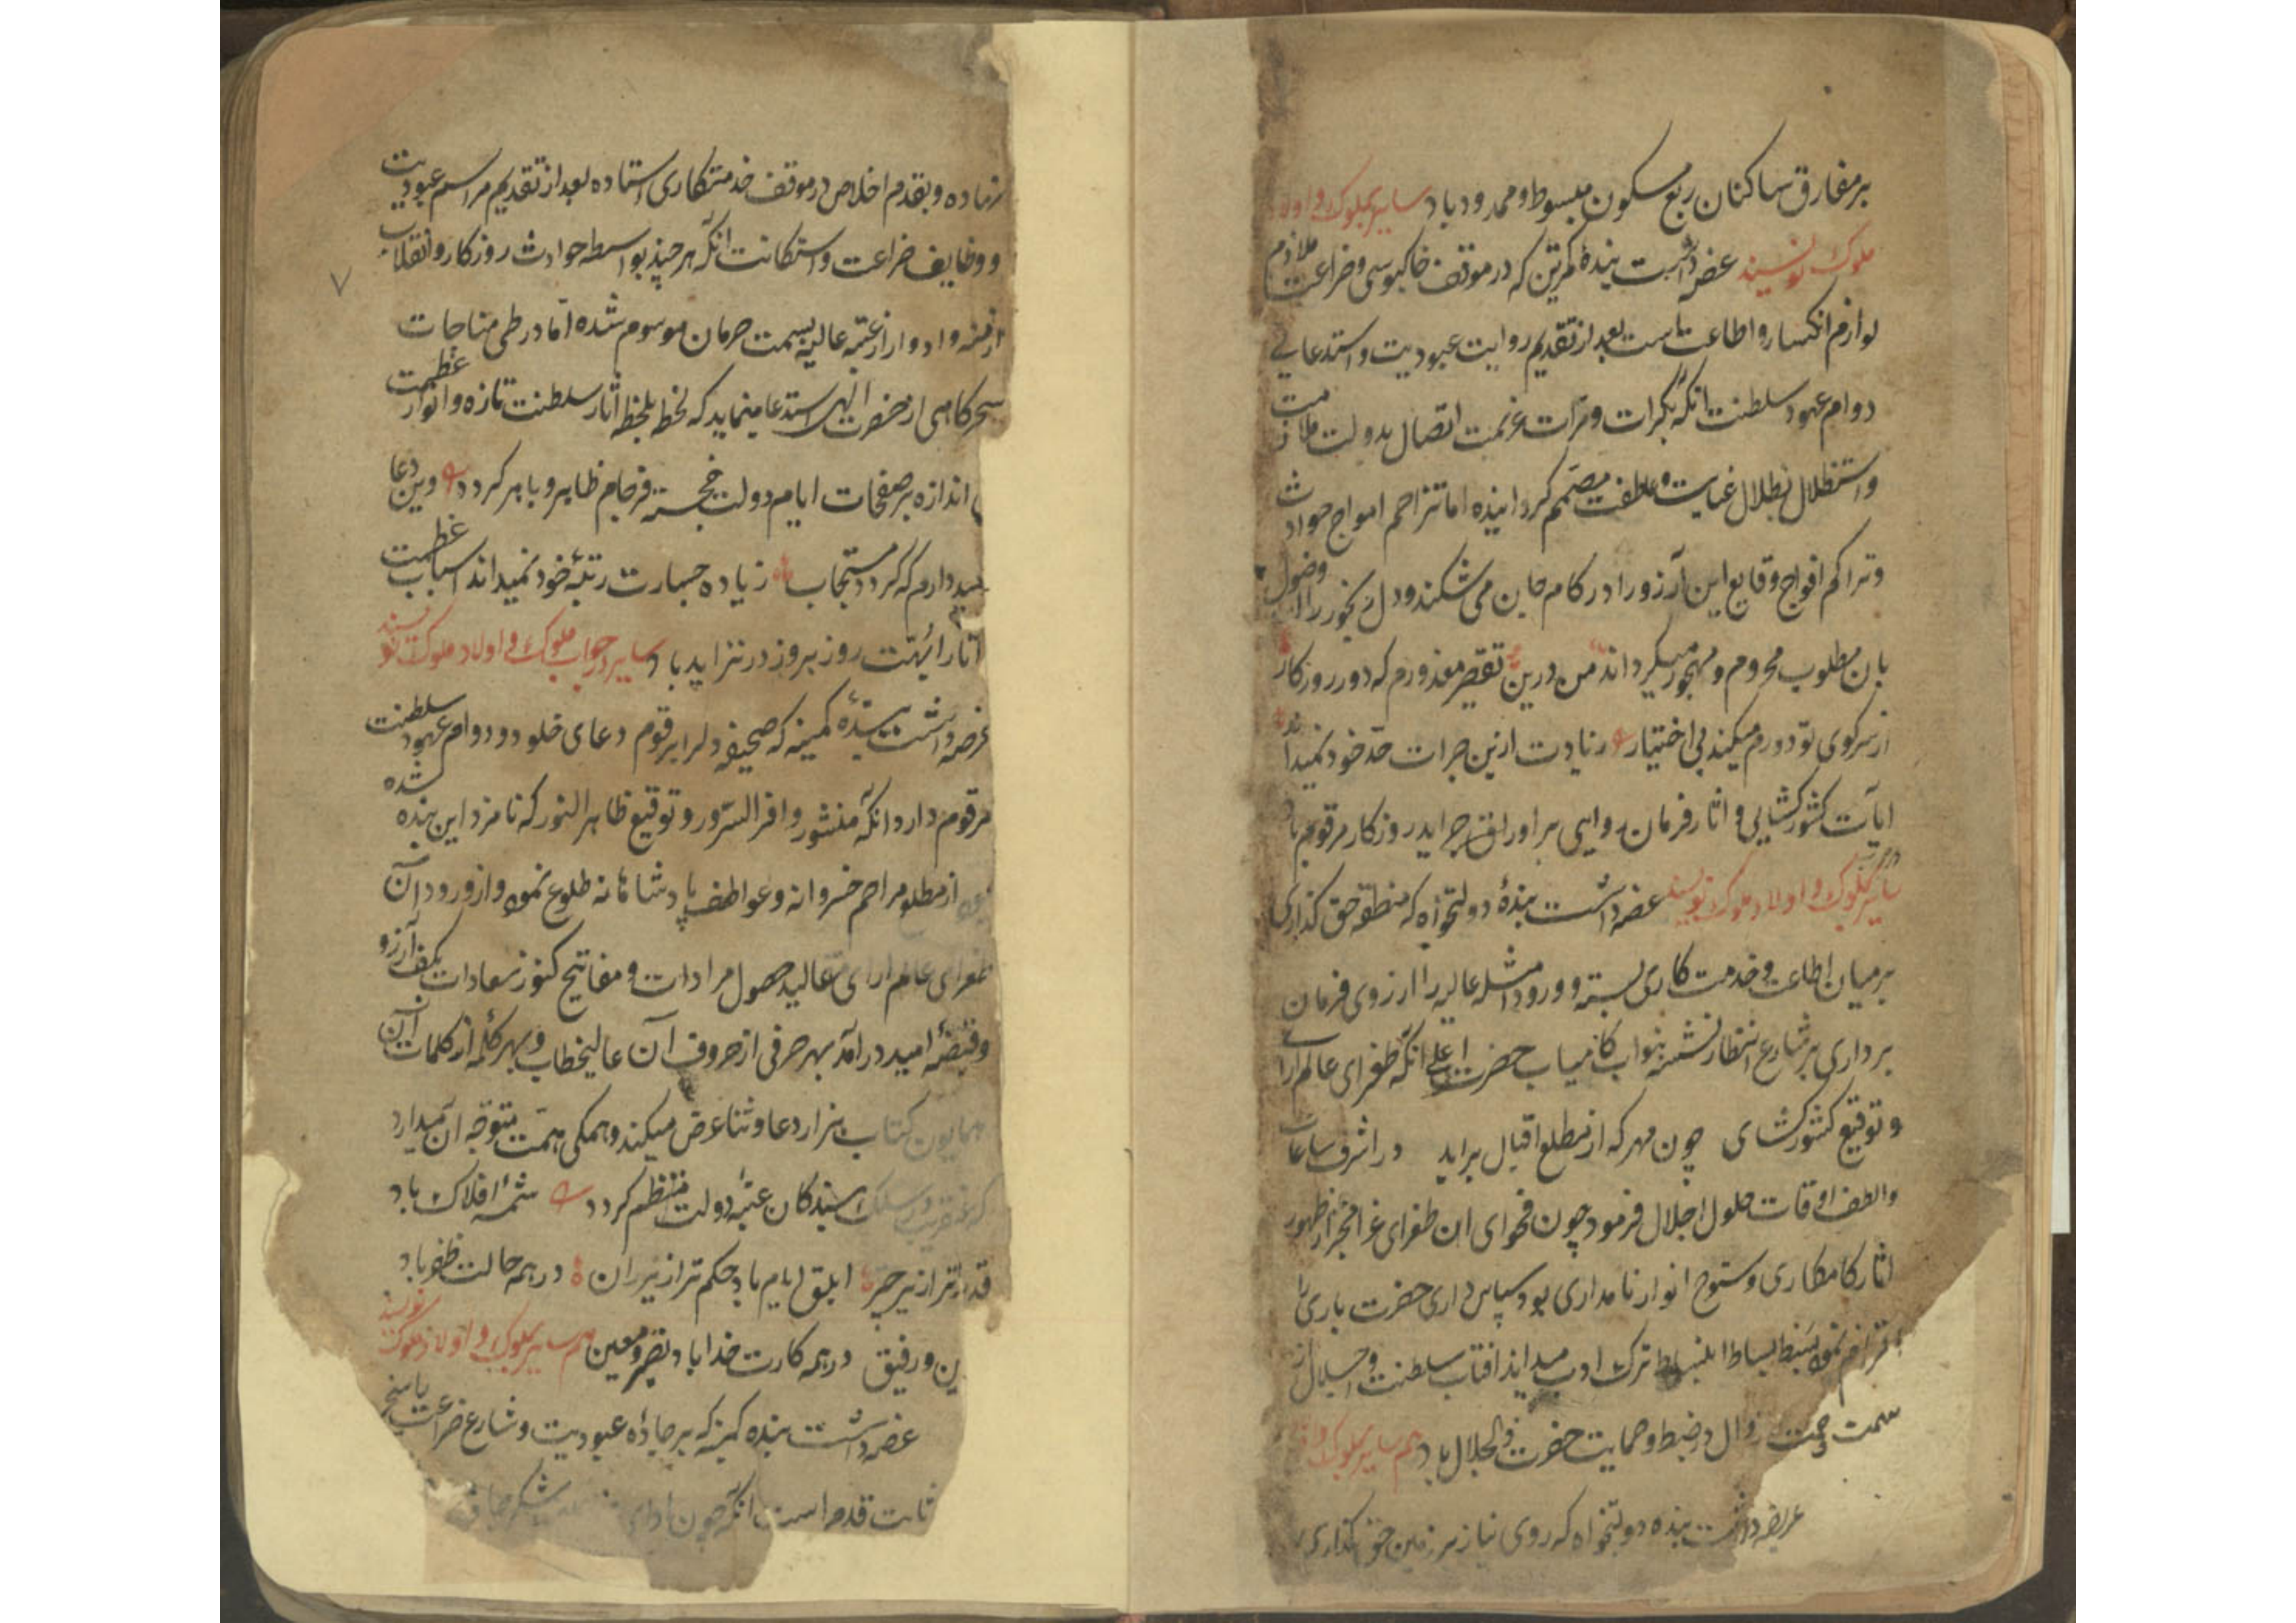 بر مفارق ساکنان ربع مسکون مبسوط و ممدود باد سایر ملوک و اولاد
ملوک نویسند عرضه داشت بنده کمترین که در موقف خاکبوسی و ضراعت ملازم
لوازم انکسار و اطاعتست بعد از تقدیم روایت عبودیت و استدعای
دوام عهود سلطنت آنکه بکرات و مرات عزیمت اتصال بدولت ملازمت
و استظلال بظلال عنایت و عاطفت مصمم کردانیده اما تزاحم امواج حوادث
و تراکم افواج وقایع این آرزو را در کام جان می شکند و دل را از وصول
بان مطلوب محروم و مهجور میکرداند من درین تقصیر معذورم که دور روزکار
از سر کوی تو دورم میکند بی اختیار زیادت ازین جرات حد خود نمیداند
آیات کشورکشایی و اثار فرمان روایی بر اوراق جراید روزکار مرقوم باد
سایر ملوک و اولاد ملوک نویسند عرضه داشت بندهٔ دولتخواه که منطقه حق کذاری
بر میان اطاعت و خدمت کاری بسته و ورود امثله عالیه را ارزوی فرمان
برداری بر شارع انتظار نشسته بنواب کامیاب حضرت اعلی آنکه طغرای عالم آرا
و توقیع کشورکشای چون مهر که از مطلع اقبال براید در اشرف ساعات
و الطف اوقات حلول اجلال فرمود چون فحوای ان طغرای غرا مخبر از ظهور
اثار کامکاری و سنوح انوار نامداری بود سپاس داری حضرت باری را
نموده بسط بساط انبساط ترک ادب میداند افتاب سلطنت و جلال از
سمت زوال در ضبط و حمایت حضرت ذو الجلال باد هم سایر ملوک
عریضه داشت بنده دولتخواه که روی نیاز بر زمین حق کذاری
و بقدم اخلاص در موقف خدمتکاری استاده بعد از تقدیم مراسم عبودیت
و وظایف ضراعت و استکانت آنکه هر چند بواسطه حوادث روزکار و انقلاب
ازمنه و ادوار از عتبه عالیه بسمت حرمان موسوم شده اما در طی مناجات
سحرکاهی از حضرت الهی استدعا مینماید که لحظه بلحظه اثار سلطنت تازه و انوار عظمت
بی اندازه بر صفحات ایام دولت خجسته فرجام ظاهر و باهر کردد وین دعا
امید دارم که کردد مستجاب زیاده جسارت رتبهٔ خود نمیداند اسباب عظمت
اثار ابهت روز بروز در تزاید باد سایر در جواب ملوک و اولاد ملوک نویسند
عرضه داشت بندهٔ کمینه که صحیفه دل را برقوم دعای خلود و دوام عهود سلطنت
مرقوم دارد آنکه منشور وافر السرور و توقیع ظاهر النور که نامزد این بنده شده
بود از مطلع مراحم خسروانه و عواطف پادشاهانه طلوع نموده و از ورود آن
طغرای عالم ارای مقالید حصول مرادات و مفاتیح کنوز سعادات بکف آرزو
و قبضهٔ امید درآمد بهر حرفی از حروف آن عالیخطاب و بهر کلمه از کلمات آن
همایون کتاب هزار دعا و ثنا عرض میکند و همکی همت متوجه آن میدارد
که عنقریب در سلک بندکان عتبهٔ دولت منتظم کردد شمهٔ افلاک باد
قدر تر از تیر چرخ ابلق ایام باد حکم ترا زیر ران در همه حالت ظفر باد
ورفیق در همه کارت خدا باد نصیر و معین هم سایر ملوک و اولاد ملوک نویسند
عرضه داشت بنده کمینه که بر جادهٔ عبودیت و شارع ضراعت راسخ
ثابت قدم است آنکه چون ادای